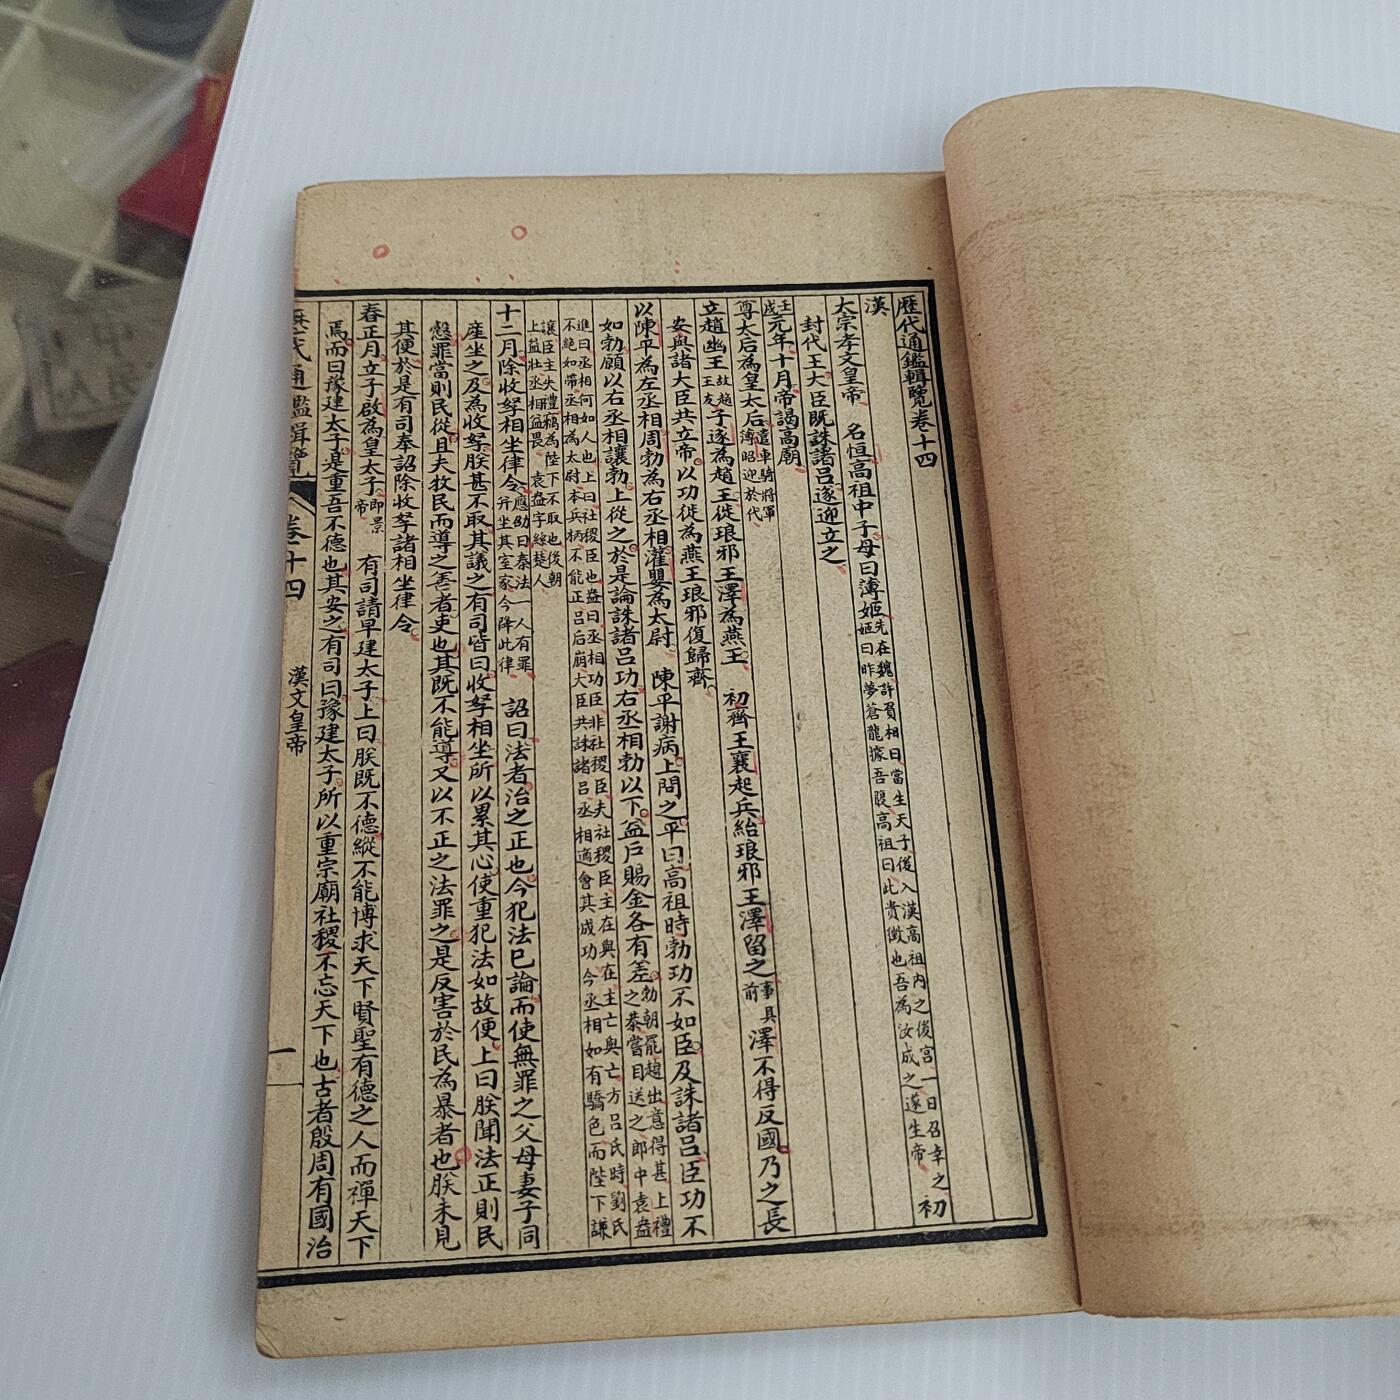 歷代通鑑輯覽卷十四
漢
太宗孝文皇帝 名恒高祖中子母曰薄姬先在魏許負相曰當生天子後入漢高祖内之後宮一日召幸之姬曰昨夢蒼龍據吾腹高祖曰此貴徵也吾為汝成之遂生帝初
封代王大臣既誅諸呂遂迎立之
壬戌元年十月帝謁高廟
尊太后為皇太后遣車騎將軍薄昭迎於代
立趙幽王故趙王友子遂為趙王徙琅邪王澤為燕王 初齊王襄起兵紿琅邪王澤留之事具前澤不得反國乃之長
安與諸大臣共立帝以功徙為燕王琅邪復歸齊
以陳平為左丞相周勃為右丞相灌嬰為太尉 陳平謝病上問之平曰高祖時勃功不如臣及誅諸呂臣功不
如勃願以右丞相讓勃上從之於是論誅諸呂功右丞相勃以下益戶賜金各有差勃朝罷趨出意得甚上禮之恭嘗目送之郎中袁盎
進曰丞相何如人也上曰社稷臣也盎曰丞相功臣非社稷臣夫社稷臣主在與在主亡與亡方呂氏時劉氏不絶如帶丞相為太尉本兵柄不能正呂后崩大臣共誅諸呂丞相適會其成功今丞相如有驕色而陛下謙
讓臣主失禮竊為陛下不取也後朝上益壯丞相益畏 袁盎字絲楚人
十二月除收孥相坐律令應劭曰秦法一人有罪并坐其室家今除此律 詔曰法者治之正也今犯法已論而使無罪之父母妻子同
産坐之及為收孥朕甚不取其議之有司皆曰收孥相坐所以累其心使重犯法如故便上曰朕聞法正則民
慤罪當則民從且夫牧民而導之善者吏也其既不能導又以不正之法罪之是反害於民為暴者也朕未見
其便於是有司奉詔除收孥諸相坐律令
春正月立子啟為皇太子即景帝 有司請早建太子上曰朕既不德縱不能博求天下賢聖有德之人而禪天下
焉而曰豫建太子是重吾不德也其安之有司曰豫建太子所以重宗廟社稷不忘天下也古者殷周有國治
歷代通鑑輯覽 卷十四 漢文皇帝 一